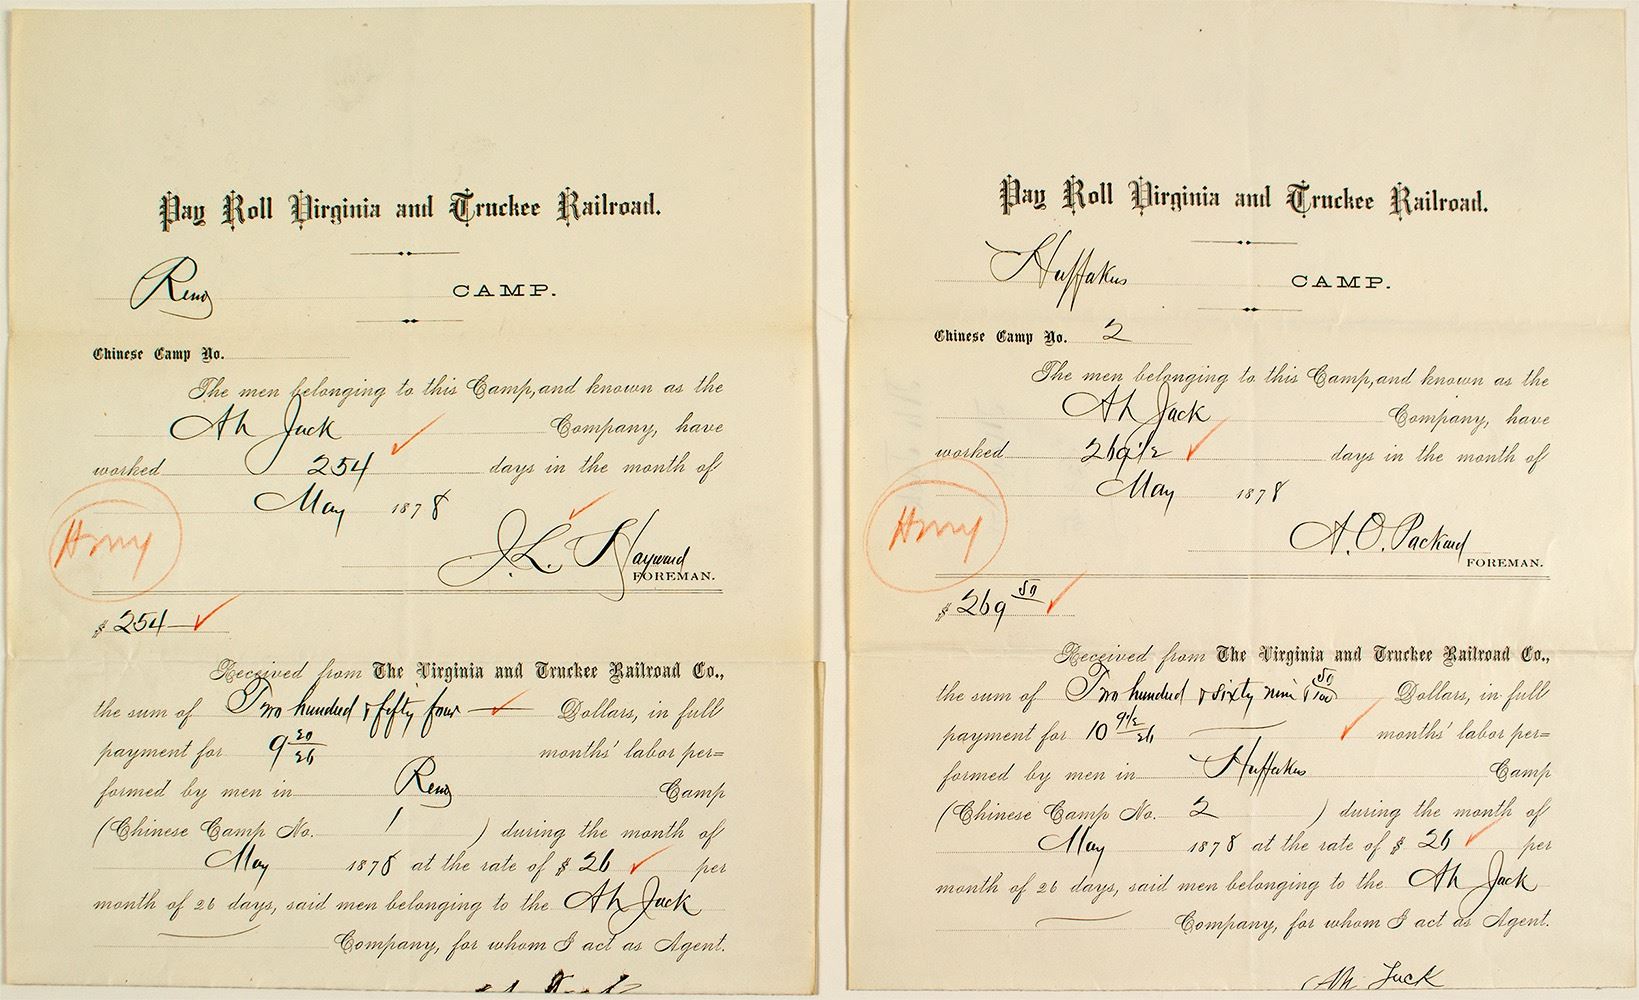 Pay Roll Virginia and Truckee Railroad.
Reno CAMP.
Chinese Camp No.
The men belonging to this Camp, and known as the
Ah Jack Company, have
worked 254 days in the month of
May 1878
J. L. Hayward
FOREMAN.
$ 254
Received from The Virginia and Truckee Railroad Co.,
the sum of Two hundred & fifty four Dollars, in full
payment for 9 20/26 months' labor per=
formed by men in Reno Camp
(Chinese Camp No. 1 ) during the month of
May 1878 at the rate of $ 26 per
month of 26 days, said men belonging to the Ah Jack
Company, for whom I act as Agent.
Pay Roll Virginia and Truckee Railroad.
Huffakers CAMP.
Chinese Camp No. 2
The men belonging to this Camp, and known as the
Ah Jack Company, have
worked 269 1/2 days in the month of
May 1878
A. O. Packard
FOREMAN.
$ 269 50
Received from The Virginia and Truckee Railroad Co.,
the sum of Two hundred & sixty nine & 50/100 Dollars, in full
payment for 10 9 1/2/26 months' labor per=
formed by men in Huffakers Camp
(Chinese Camp No. 2 ) during the month of
May 1878 at the rate of $ 26 per
month of 26 days, said men belonging to the Ah Jack
Company, for whom I act as Agent.
Ah Jack